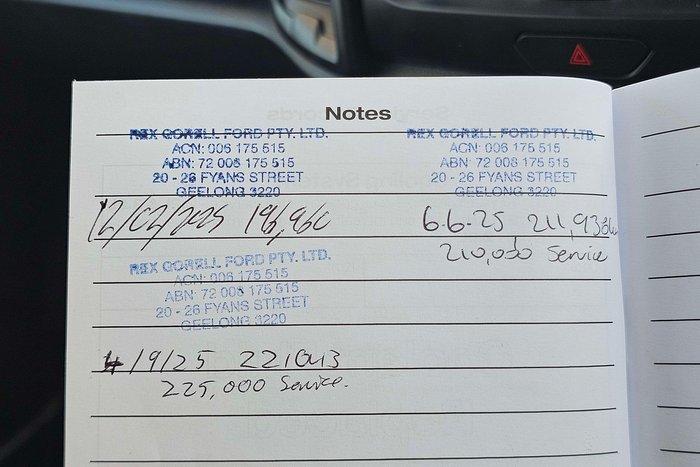 Notes
REX GORELL FORD PTY. LTD.
ACN: 006 175 515
ABN: 72 006 175 515
20 - 26 FYANS STREET
GEELONG 3220
12/02/2025 196,960
REX GORELL FORD PTY. LTD.
ACN: 006 175 515
ABN: 72 006 175 515
20 - 26 FYANS STREET
GEELONG 3220
6-6-25 211,936km
210,000 Service
REX GORELL FORD PTY. LTD.
ACN: 006 175 515
ABN: 72 006 175 515
20 - 26 FYANS STREET
GEELONG 3220
4/9/25
225,000 Service.